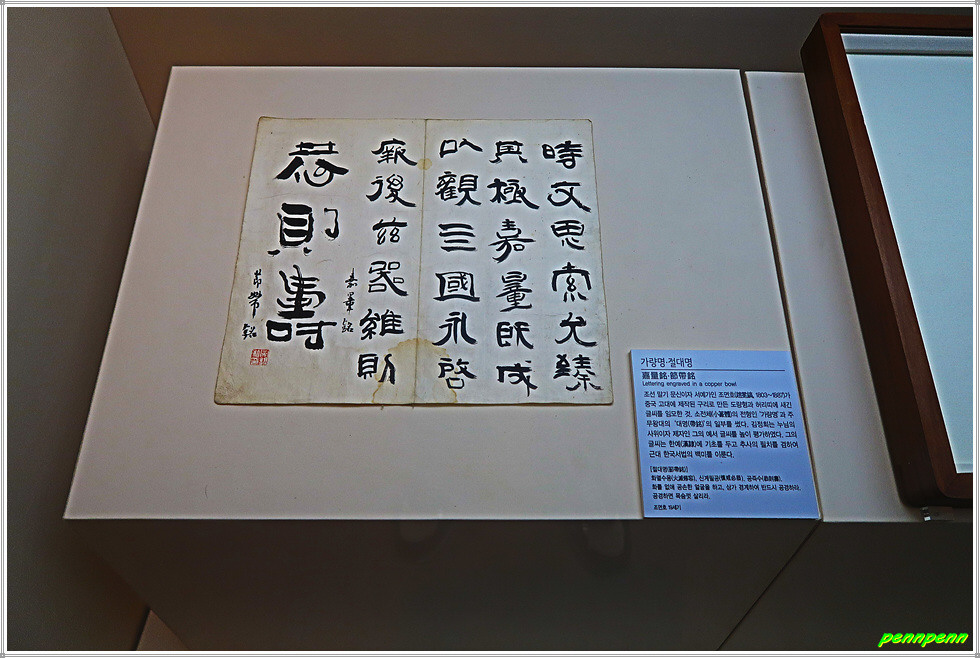 時文思索允臻
其極嘉量旣成
以觀亖國永啓
厥後玆器維則
嘉量銘
恭則壽
節帶銘
가량명·절대명
嘉量銘·節帶銘
Lettering engraved in a copper bowl
조선 말기 문신이자 서예가인 조면호(趙冕鎬, 1803~1887)가
중국 고대에 제작된 구리로 만든 도량형과 허리띠에 새긴
글씨를 임모한 것. 소전체(小篆體)의 전형인 '가량명'과 주
무왕대의 '대명(帶銘)'의 일부를 썼다. 김정희는 누님의
사위이자 제자인 그의 예서 글씨를 높이 평가하였다. 그의
글씨는 한예(漢隸)에 기초를 두고 추사의 필치를 겸하여
근대 한국서법의 백미를 이룬다.
[절대명(節帶銘)]
화멸수용(火滅修容), 신계필공(愼戒必恭), 공즉수(恭則壽).
화를 없애 공손한 얼굴을 하고, 삼가 경계하여 반드시 공경하라.
공경하면 목숨껏 살리라.
조면호 19세기
pennpenn